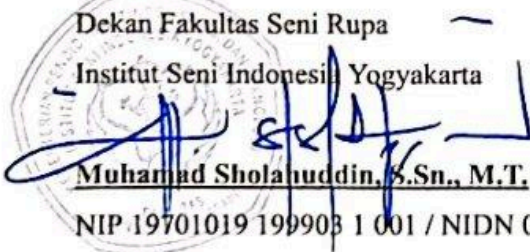 Dekan Fakultas Seni Rupa
Institut Seni Indonesia Yogyakarta
Muhamad Sholahuddin, S.Sn., M.T.
NIP 19701019 199903 1 001 / NIDN